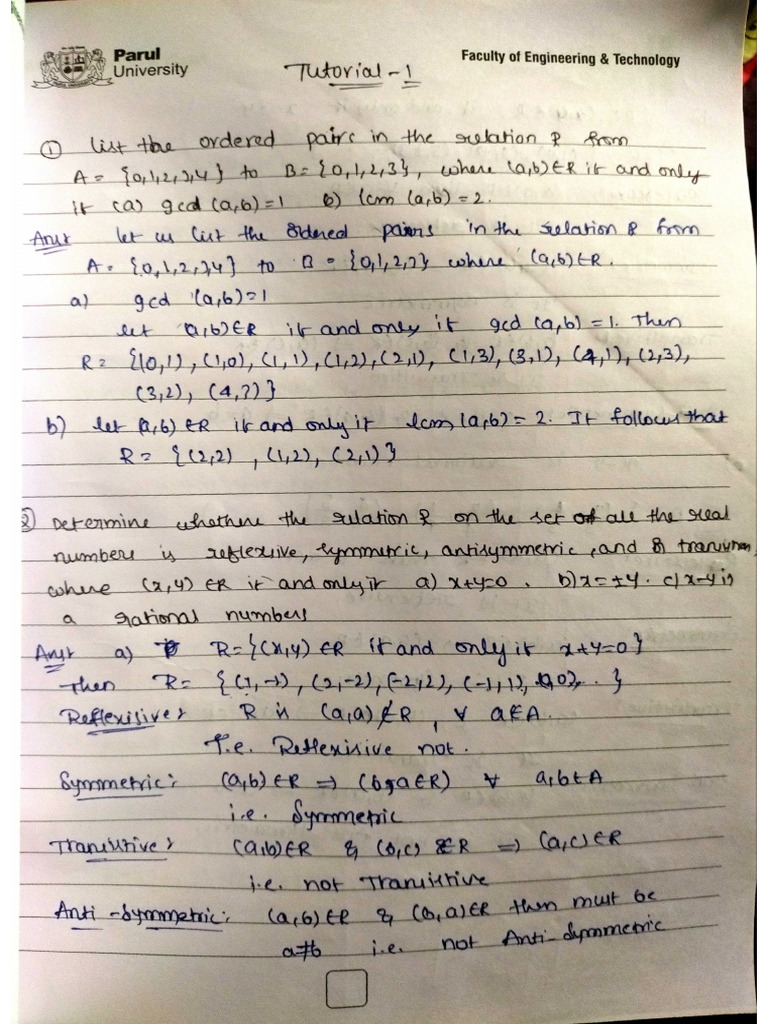 Parul
University
Faculty of Engineering & Technology
Tutorial-1
① List the ordered pairs in the relation R from
A = {0,1,2,3,4} to B = {0,1,2,3}, where (a,b) ∈ R if and only
if (a) gcd (a,b)=1 b) lcm (a,b) = 2.
Ans: let us list the ordered pairs in the relation R from
A = {0,1,2,3,4} to B = {0,1,2,3} where (a,b) ∈ R.
a) gcd (a,b)=1
let (a,b) ∈ R if and only if gcd (a,b) = 1. Then
R = {(0,1), (1,0), (1,1), (1,2), (2,1), (1,3), (3,1), (4,1), (2,3),
(3,2), (4,3)}
b) let (a,b) ∈ R if and only if lcm (a,b) = 2. It follows that
R = {(2,2), (1,2), (2,1)}
② Determine whethere the relation R on the set of all the real
numbers is reflexive, symmetric, antisymmetric, and
where (x,y) ∈ R if and only if a) x+y=0. b) x=±y. c) x-y is
a rational numbers
Ans: a) R = {(x,y) ∈ R if and only if x+y=0}
Then R = {(1,-1), (2,-2), (-2,2), (-1,1), 0,0), . . }
Reflexisive: R is (a,a) ∉ R, ∀ a ∈ A.
I.e. Reflexisive not.
Symmetric: (a,b) ∈ R ⇒ (b,a ∈ R) ∀ a,b ∈ A
i.e. Symmetric
Transitive: (a,b) ∈ R & (b,c) ∈ R ⇒ (a,c) ∈ R
i.e. not Transitive
Anti-symmetric: (a,b) ∈ R & (b,a) ∈ R then must be
a≠b i.e. not Anti-symmetric